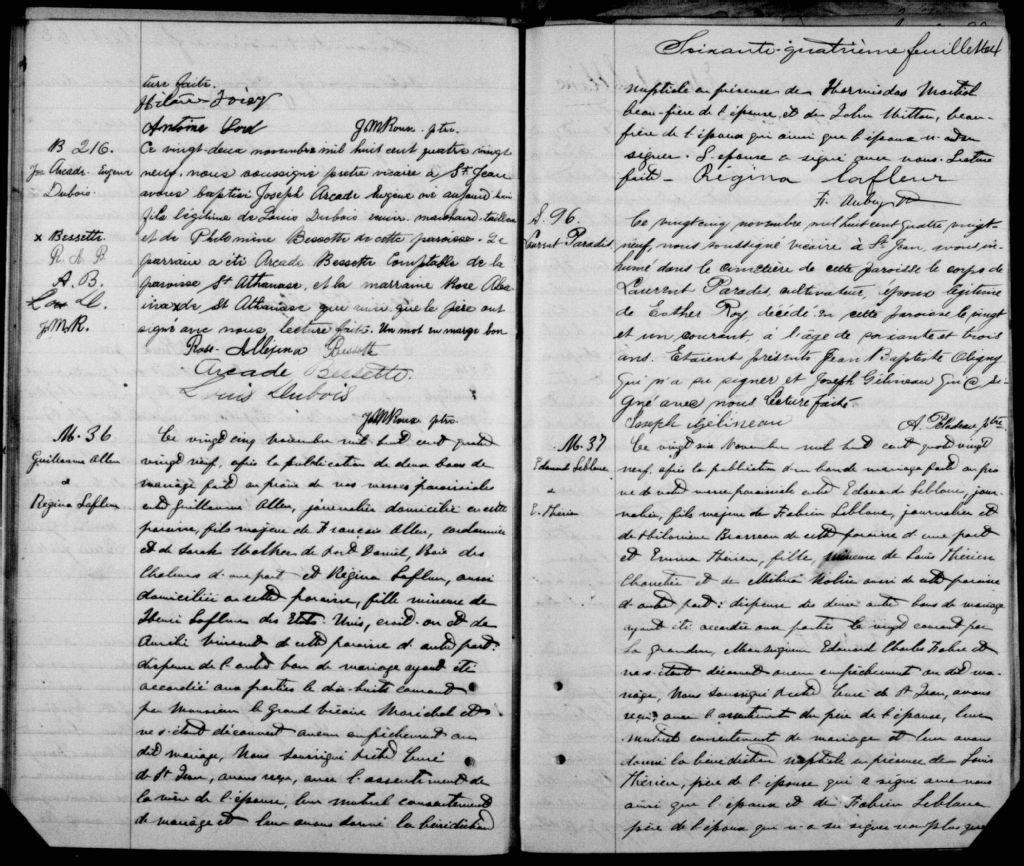 ture faite.
Hilaire Foisy
Antoine Lord JMRoux ptre.
B 216.
Jos Arcade Eugène
Dubois.
x Bessette
R. A. B
A. B.
L. D.
JMR.
Ce vingt-deux novembre mil huit cent quatre vingt
neuf, nous soussigné prêtre vicaire à St Jean
avons baptisé Joseph Arcade Eugène né aujourd'hui
fils légitime de Louis Dubois ouvrier, marchand-tailleur
et de Philomène Bessette de cette paroisse. Le
parrain a été Arcade Bessette Comptable de la
paroisse St Athanase, et la marraine Rose Alex
ina x de St Athanase qui ainsi que le père ont
signé avec nous, lecture faite. Un mot en marge bon
Rose-Allexina Bessette
Arcade Bessette.
Louis Dubois
JMRoux ptre.
M. 36
Guillaume Allen
&
Régina Lafleur
Ce vingt cinq Novembre mil huit cent quatre
vingt neuf, après la publication de deux bans de
mariage faite au prône de nos messes paroissiales
entre Guillaume Allen, journalier domicilié en cette
paroisse, fils majeur de François Allen, cordonnier
et de Sarah de Port Daniel, Baie des
Chaleurs d'une part et Régina Lafleur, aussi
domiciliée en cette paroisse, fille mineure de
Henri Lafleur des Etats Unis, croit-on et de
Aurélie Vincent de cette paroisse d'autre part:
dispense de l'autre ban de mariage ayant été
accordée aux parties le dix-huit courant
par Monsieur le grand Vicaire Maréchal et
ne s'étant découvert aucun empêchement au
dit mariage, Nous soussigné prêtre Curé
de St Jean, avons reçu, avec l'assentiment de
la mère de l'épouse, leur mutuel consentement
de mariage et leur avons donné la bénédiction
Soixante-quatrième feuillet 64
nuptiale en présence de Hermidas Martel
beau-frère de l'épouse, et de John Mitton, beau-
frère de l'époux qui ainsi que l'époux n'a su
signer. L'épouse a signé avec nous. Lecture
faite - Regina Lafleur
F. Aubry
S. 96.
Laurent Paradis
Ce vingt cinq novembre mil huit cent quatre vingt-
neuf, nous soussigné vicaire à St Jean, avons in-
humé dans le cimetière de cette paroisse le corps de
Laurent Paradis, cultivateur, époux légitime
de Esther Roy, décédé en cette paroisse le vingt
et un courant, à l'âge de soixante et trois
ans. Etaient présents Jean Baptiste Oligny
qui n'a su signer et Joseph Gélineau qui a si-
gné avec nous lecture faite
Joseph Gélineau ptre
M. 37
Edouard Leblanc
&
E. Thérien
Ce vingt six Novembre mil huit cent quatre vingt
neuf, après la publication d'un ban de mariage faite au prô-
ne de notre messe paroissiale entre Edouard Leblanc, jour-
nalier, fils majeur de Fabien Leblanc, journalier et
de Philomène Brosseau de cette paroisse d'une part
et Emma Thérien, fille mineure de Louis Thérien
Charretier et de aussi de cette paroisse
d'autre part: dispense des deux autres bans de mariage
ayant été accordée aux parties le vingt courant par
Sa Grandeur, Monseigneur Edouard Charles Fabre et
ne s'étant découvert aucun empêchement au dit ma-
riage, Nous soussigné prêtre Curé de St Jean, avons
reçu, avec l'assentiment du père de l'épouse, leur
mutuel consentement de mariage et leur avons
donné la bénédiction nuptiale en présence de Louis
Thérien, père de l'épouse qui a signé avec nous
ainsi que l'époux et de Fabien Leblanc
père de l'époux qui n'a su signer non plus que